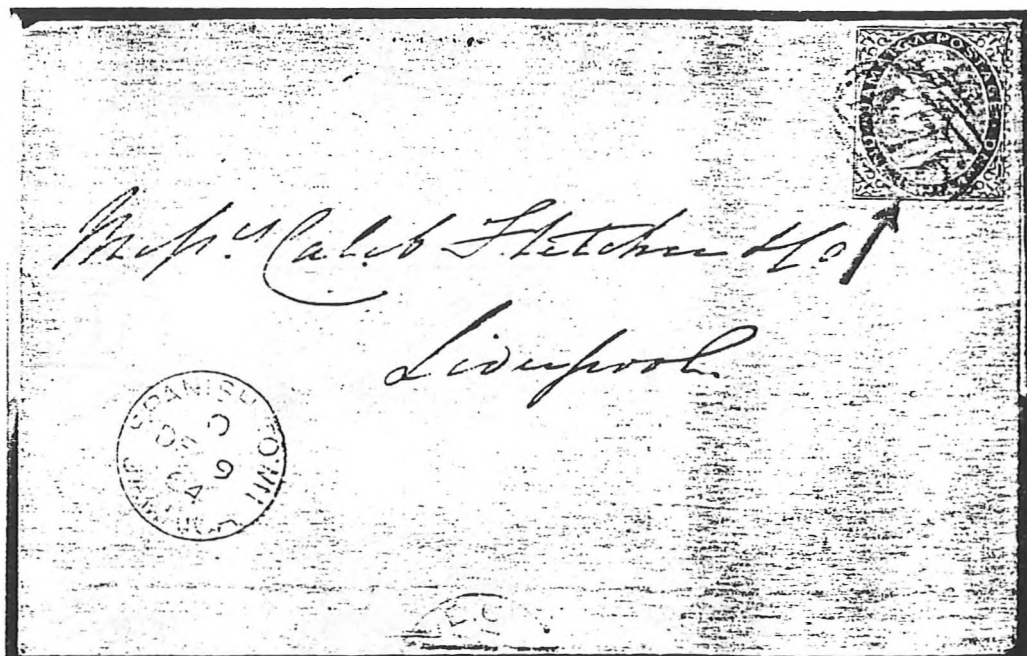 JAMAICA·POSTAGE·ONE
Messrs Caleb Fletcher & Co
Liverpool
SPANISH TOWN
C
DE 9
64
JAMAICA